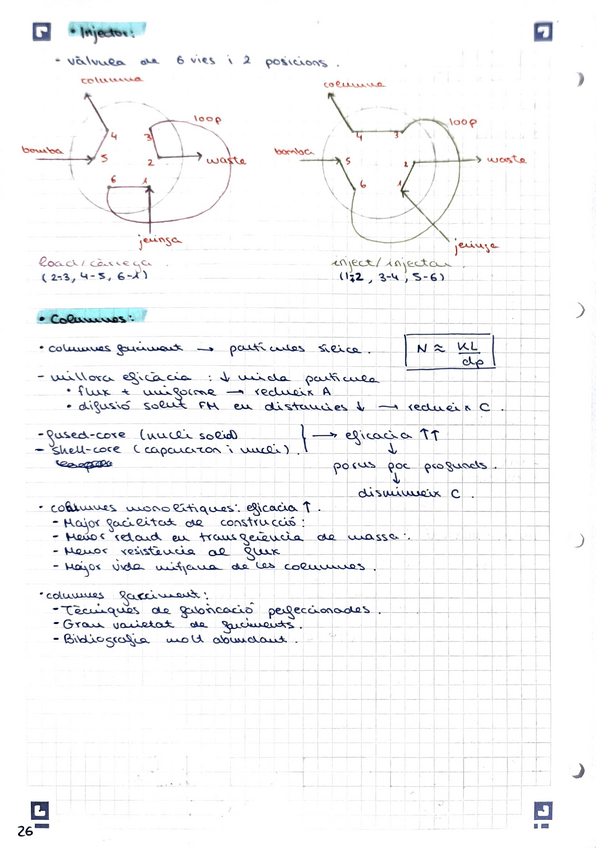 • Injector:
- vàlvula de 6 vies i 2 posicions.
columna
columna
loop
loop
4
3
4
3
bomba
5
2
waste
bomba
5
2
waste
6
1
6
1
jeringa
jeringa
load/càrrega
inject/injectar
(2-3, 4-5, 6-1)
(1-2, 3-4, 5-6)
• Columnes:
• columnes farciment → partícules sílice.
N ≈ KL/dp
- millora eficàcia: ↓ mida partícula
• flux + uniforme → redueix A
• difusió solut FM en distàncies ↓ → redueix C.
- fused-core (nucli sòlid)
→ eficàcia ↑↑
- shell-core (caparazon i nucli).
↓
porus poc profunds.
↓
disminueix C.
• columnes monolítiques: eficàcia ↑.
- Major facilitat de construcció:
- Menor retard en transferència de massa:.
- Menor resistència al flux
- Major vida mitjana de les columnes.
• columnes farciment:
- Tècniques de fabricació perfeccionades.
- Gran varietat de farciments.
- Bibliografia molt abundant.
26